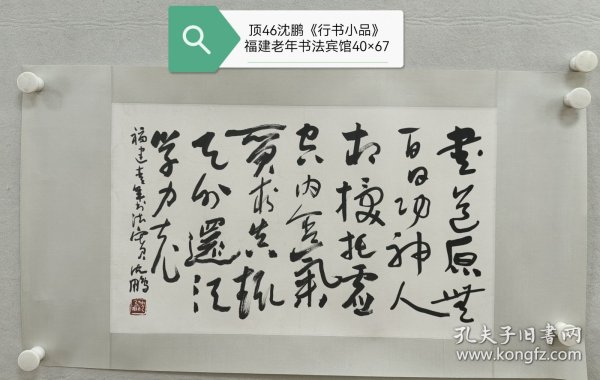 顶46沈鹏《行书小品》
福建老年书法宾馆40×67
書道原無
百日功神人
相授托虚
空内含氣
質求真趣
天外還須
学力充
福建老年书法 沈鹏
孔夫子旧书网
www.kongfz.com